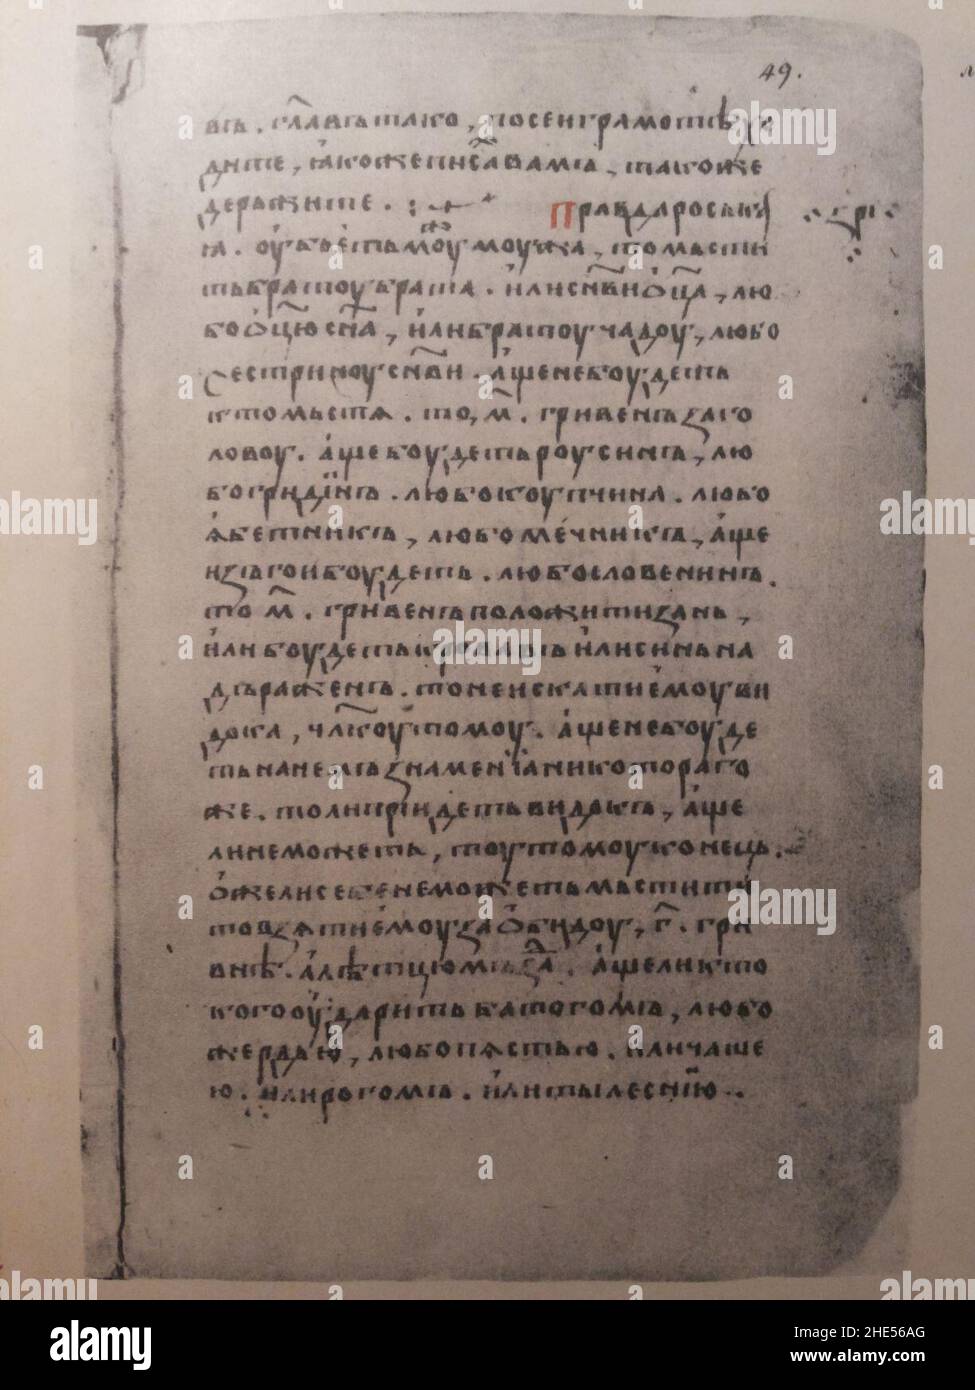 49.
въ. гл҃авъ тако, по сеи грамотѣ хо
дите, ꙗкоже писа҃ вамъ, такоже
держите.
Правда роськаꙗ
оубьеть моу҃ моужа, то мьсти
ть братоу брата. или сн҃ви оц҃а, лю
бо оц҃ю сн҃а, или братоучадоу, любо
сестриноу сн҃ви. аще не боудеть
кто мьстѧ. то, м҃. гривенъ за го
ловоу. аще боудеть роусинъ, лю
бо гридинъ. любо коупчина. любо
ѧбетникъ, любо мечникъ, аще
изъгои боудеть. любо словенинъ.
то м҃. гривенъ положити за нь,
или боудеть кровавъ или синь на
дъраженъ. то не искати емоу ви
дока, чл҃коу томоу. аще не боуде
ть на немъ знаменіа никоторого
же. то ли пріидеть видокъ, аще
ли не можеть, тоу томоу конець.
оже ли себе не можеть мьстити
то взѧти емоу за обидоу, г҃. гри
внѣ. а лѣтцю мъзда҃. аще ли кто
кого оударить батогомъ, любо
жердью, любо пѧстью. или чаше
ю. или рогомъ. или тылеснию..
a alamy
Image ID: 2HE56AG
www.alamy.com